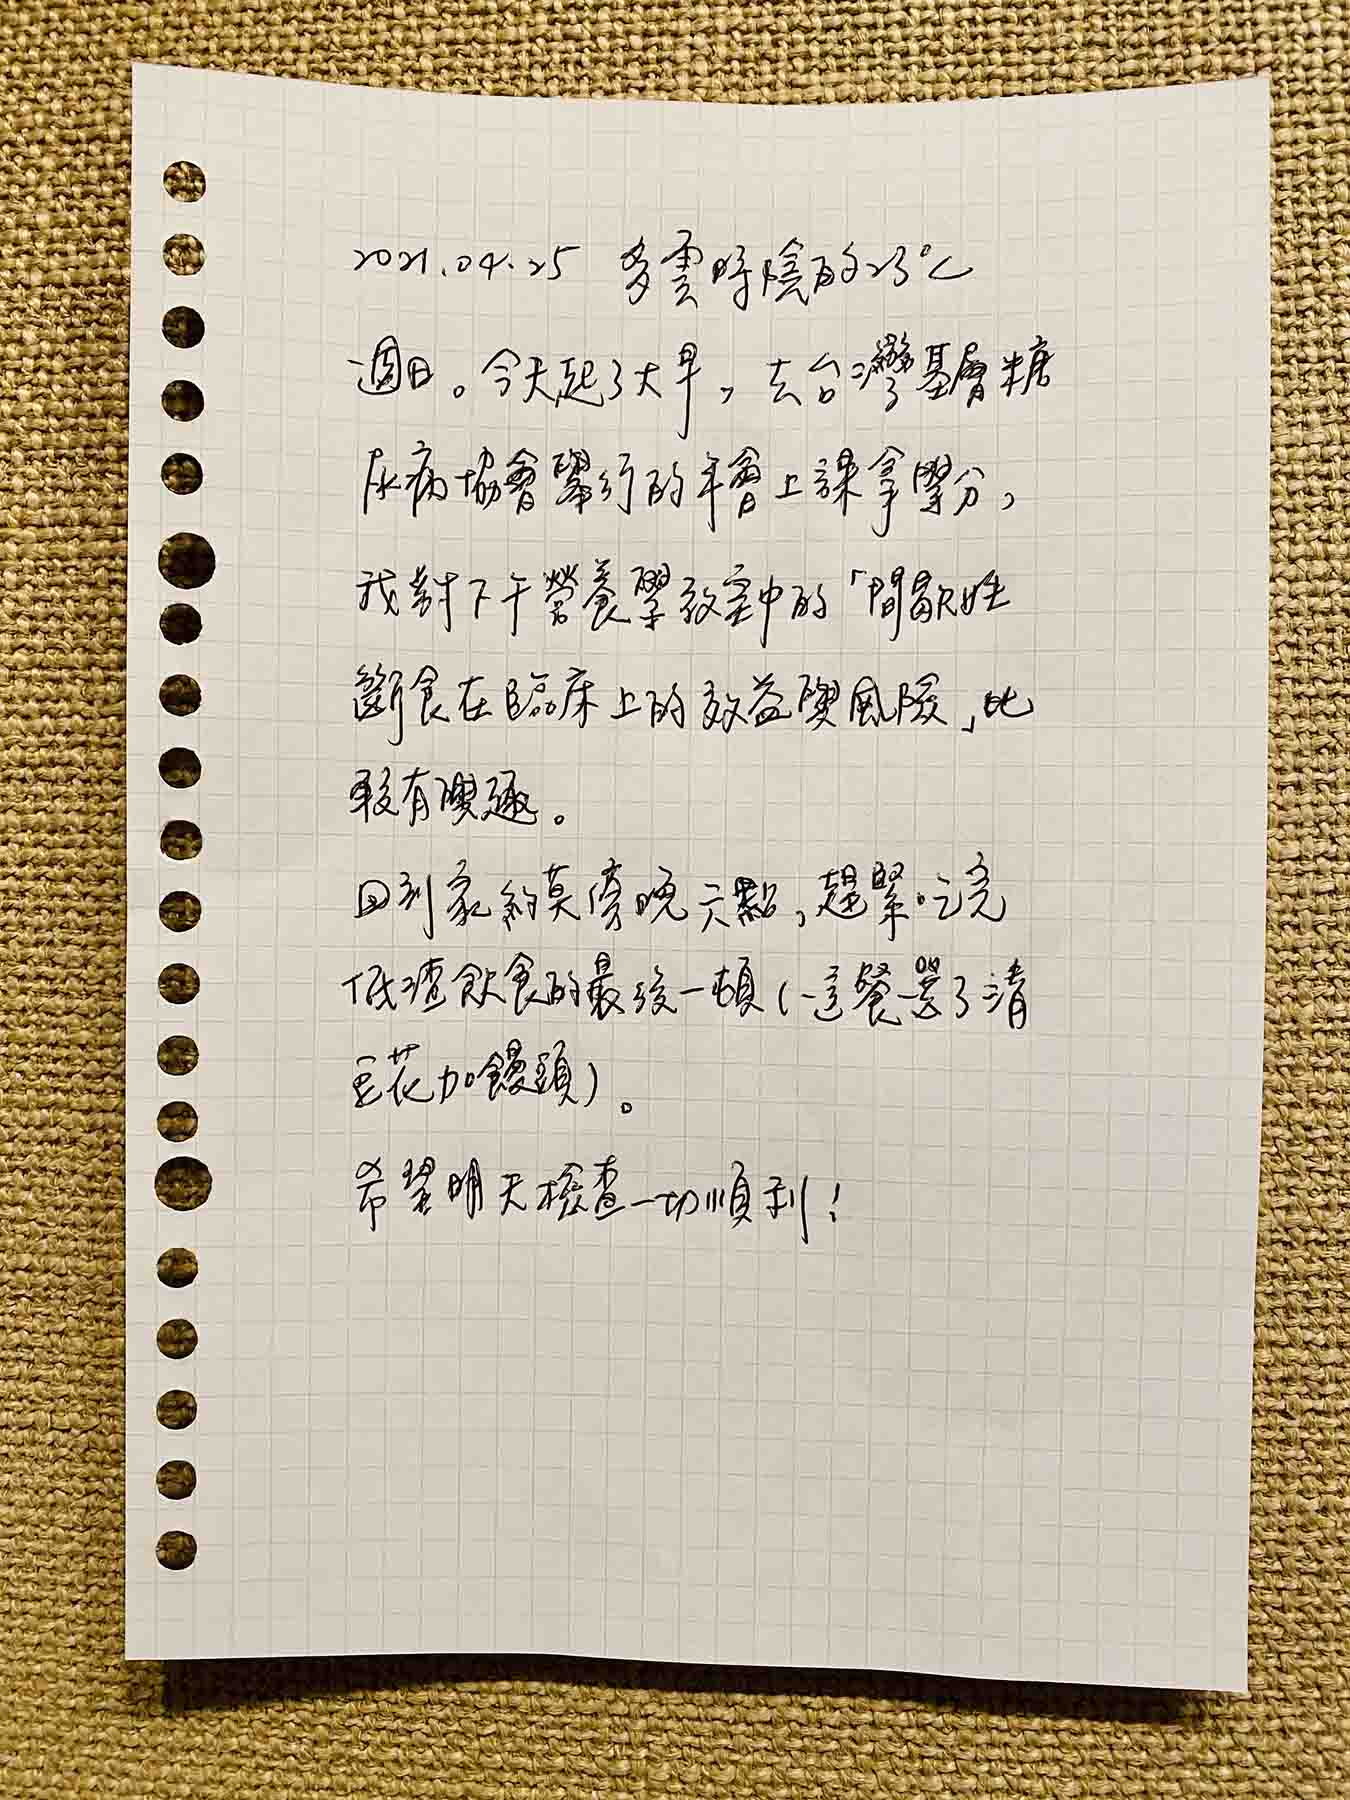 2021.04.25 多雲時陰的23℃
週日。今天起了大早，去台灣基層糖
尿病協會舉行的年會上課拿學分，
我對下午營養學教室中的「間歇性
斷食在臨床上的效益與風險」比
較有興趣。
回到家約莫傍晚六點，趕緊吃完
低渣飲食的最後一頓（這餐選了清
豆花加饅頭）。
希望明天檢查一切順利！